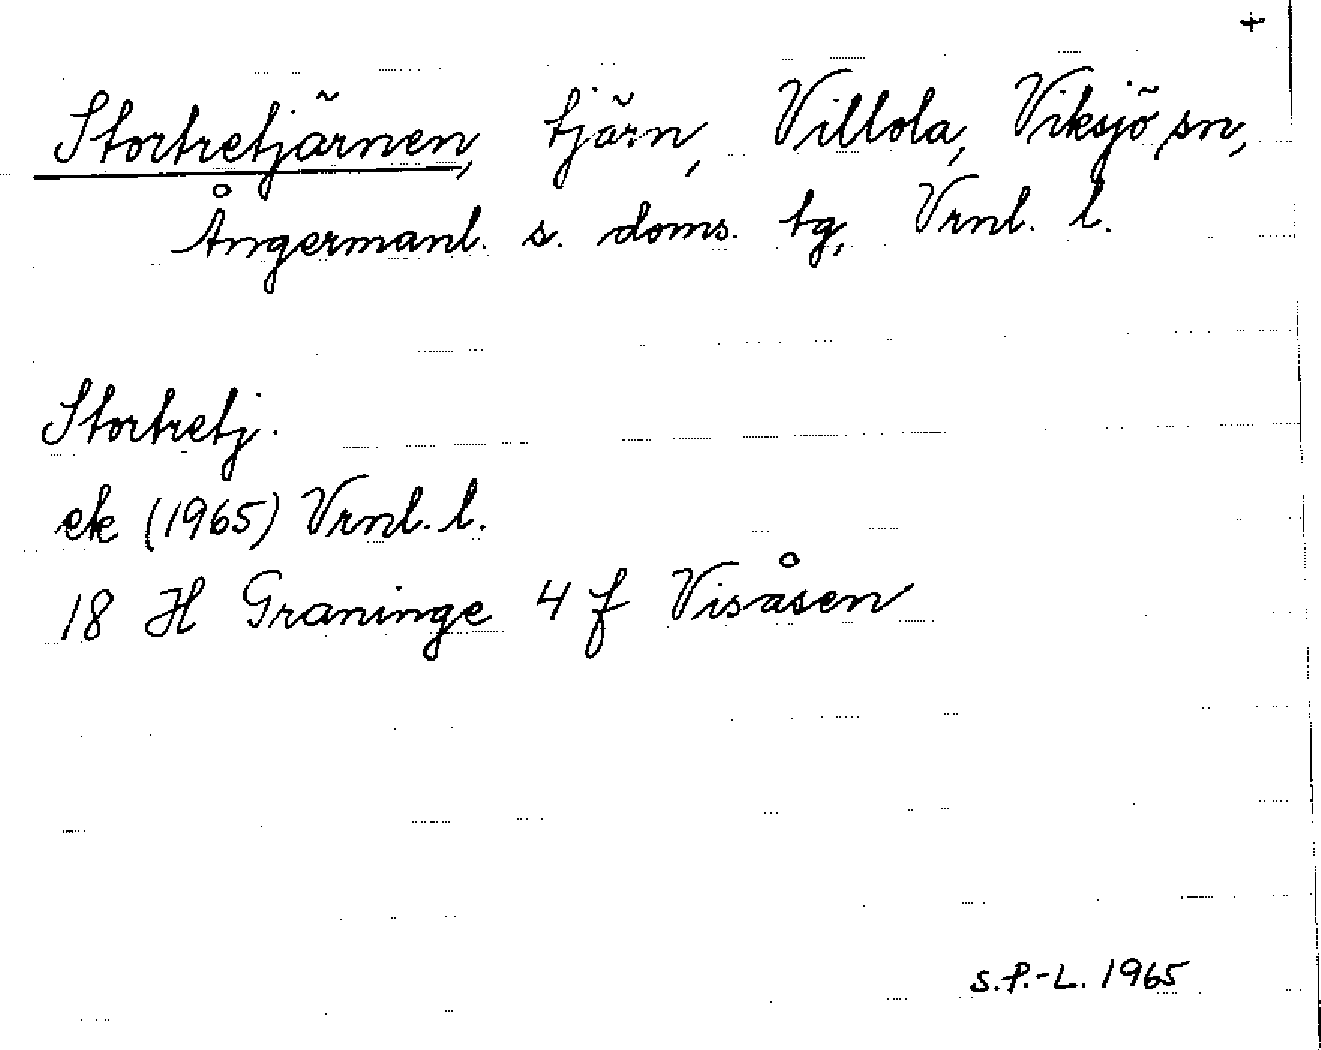 +
Stortretjärnen, tjärn, Villola, Viksjö sn,
Ångermanl. s. doms. tg, Vrnl. l.
Stortretj.
ek (1965) Vrnl. l.
18 H Graninge 4 f Visåsen
S.P.-L. 1965